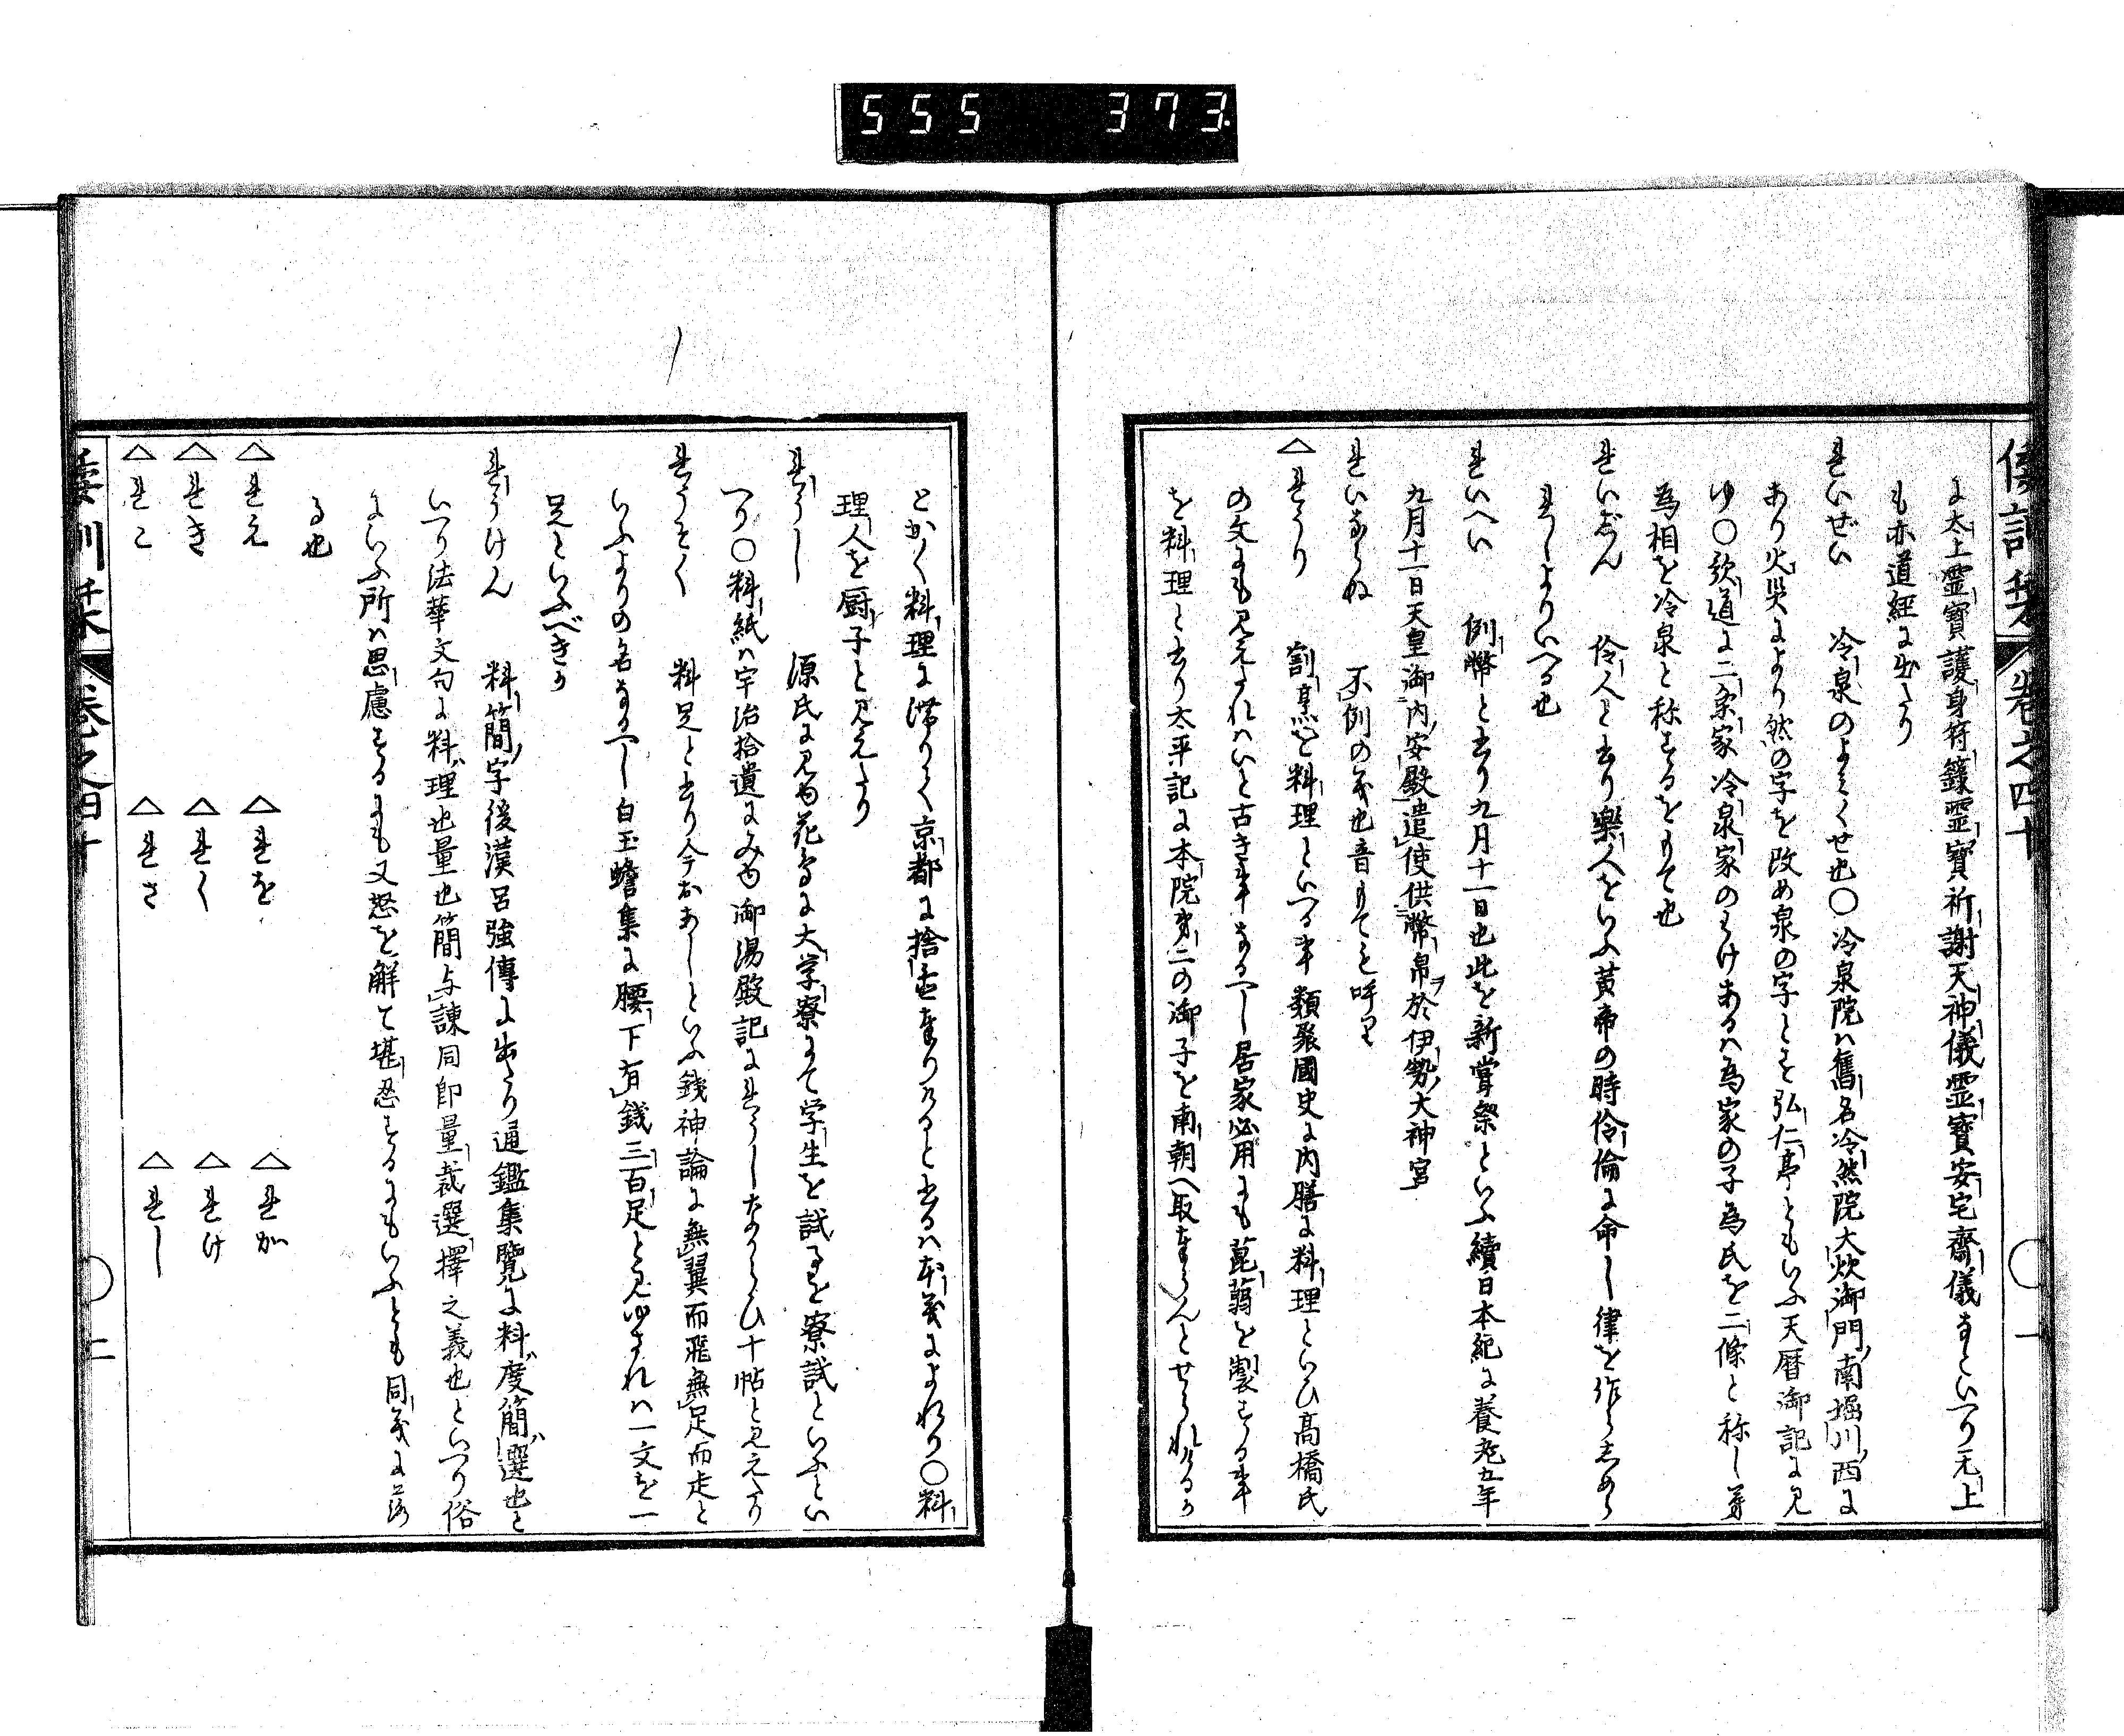 555 373
倭訓栞 巻之四十 一
に太上霊寳護身符籙霊寳祈謝天神儀霊寳安宅齋儀なといへり元上
も亦道經に出たり
れいぜい 冷泉のよみくせ也〇冷泉院ハ舊名冷然院大炊御門南堀川西に
あり火災により然の字を改め泉の字とそ弘仁亭ともいふ天暦御記に見
ゆ〇歌道に二条家冷泉家のわけあるハ為家の子為氏を二條と称し弟
為相を冷泉と称するをもて也
れいじん 伶人と書り樂人をいふ黄帝の時伶倫に命し律を作らしめら
れしよりいへる也
れいへい 例幣と書り九月十一日也此を新嘗祭といふ續日本紀に養老五年
九月十一日天皇御内安殿遣使供幣帛ヲ於伊勢大神宮
れいならぬ 不例の義也音もても呼り
△れうり 割烹を料理といへる事類聚國史に内膳に料理といひ高橋氏
の文にも見えたれハいと古き事なるへし居家必用にも菎蒻を製する事
を料理と書り太平記に本院第二の御子を南朝へ取奉らんとせられけるか
とかく料理に滞りて京都に捨置奉りけると書るハ本義によれり〇料
理人を厨子と見えたり
れうし 源氏に見ゆ花鳥に大学寮にて学生を試るを寮試といふとい
へり〇料紙ハ宇治拾遺にみゆ御湯殿記にれうしならひ十帖と見えたり
れうそく 料足と書り今おあしといふ銭神論に無翼而飛無足而走と
いふよりの名なるへし白玉蟾集に腰下有銭三百足と見ゆされハ一文を一
足といふべきか
れうけん 料簡ノ字後漢呂強傳に出たり通鑑集覽に料度簡選也と
いへり法華文句に料理也量也簡与諌同即量裁選擇之義也といへり俗
にいふ所ハ思慮するにも又怒を解て堪忍するにもいふとも同義に落
る也
△れえ △れを △れが
△れき △れく △れけ
△れこ △れさ △れし
倭訓栞 巻之四十 二